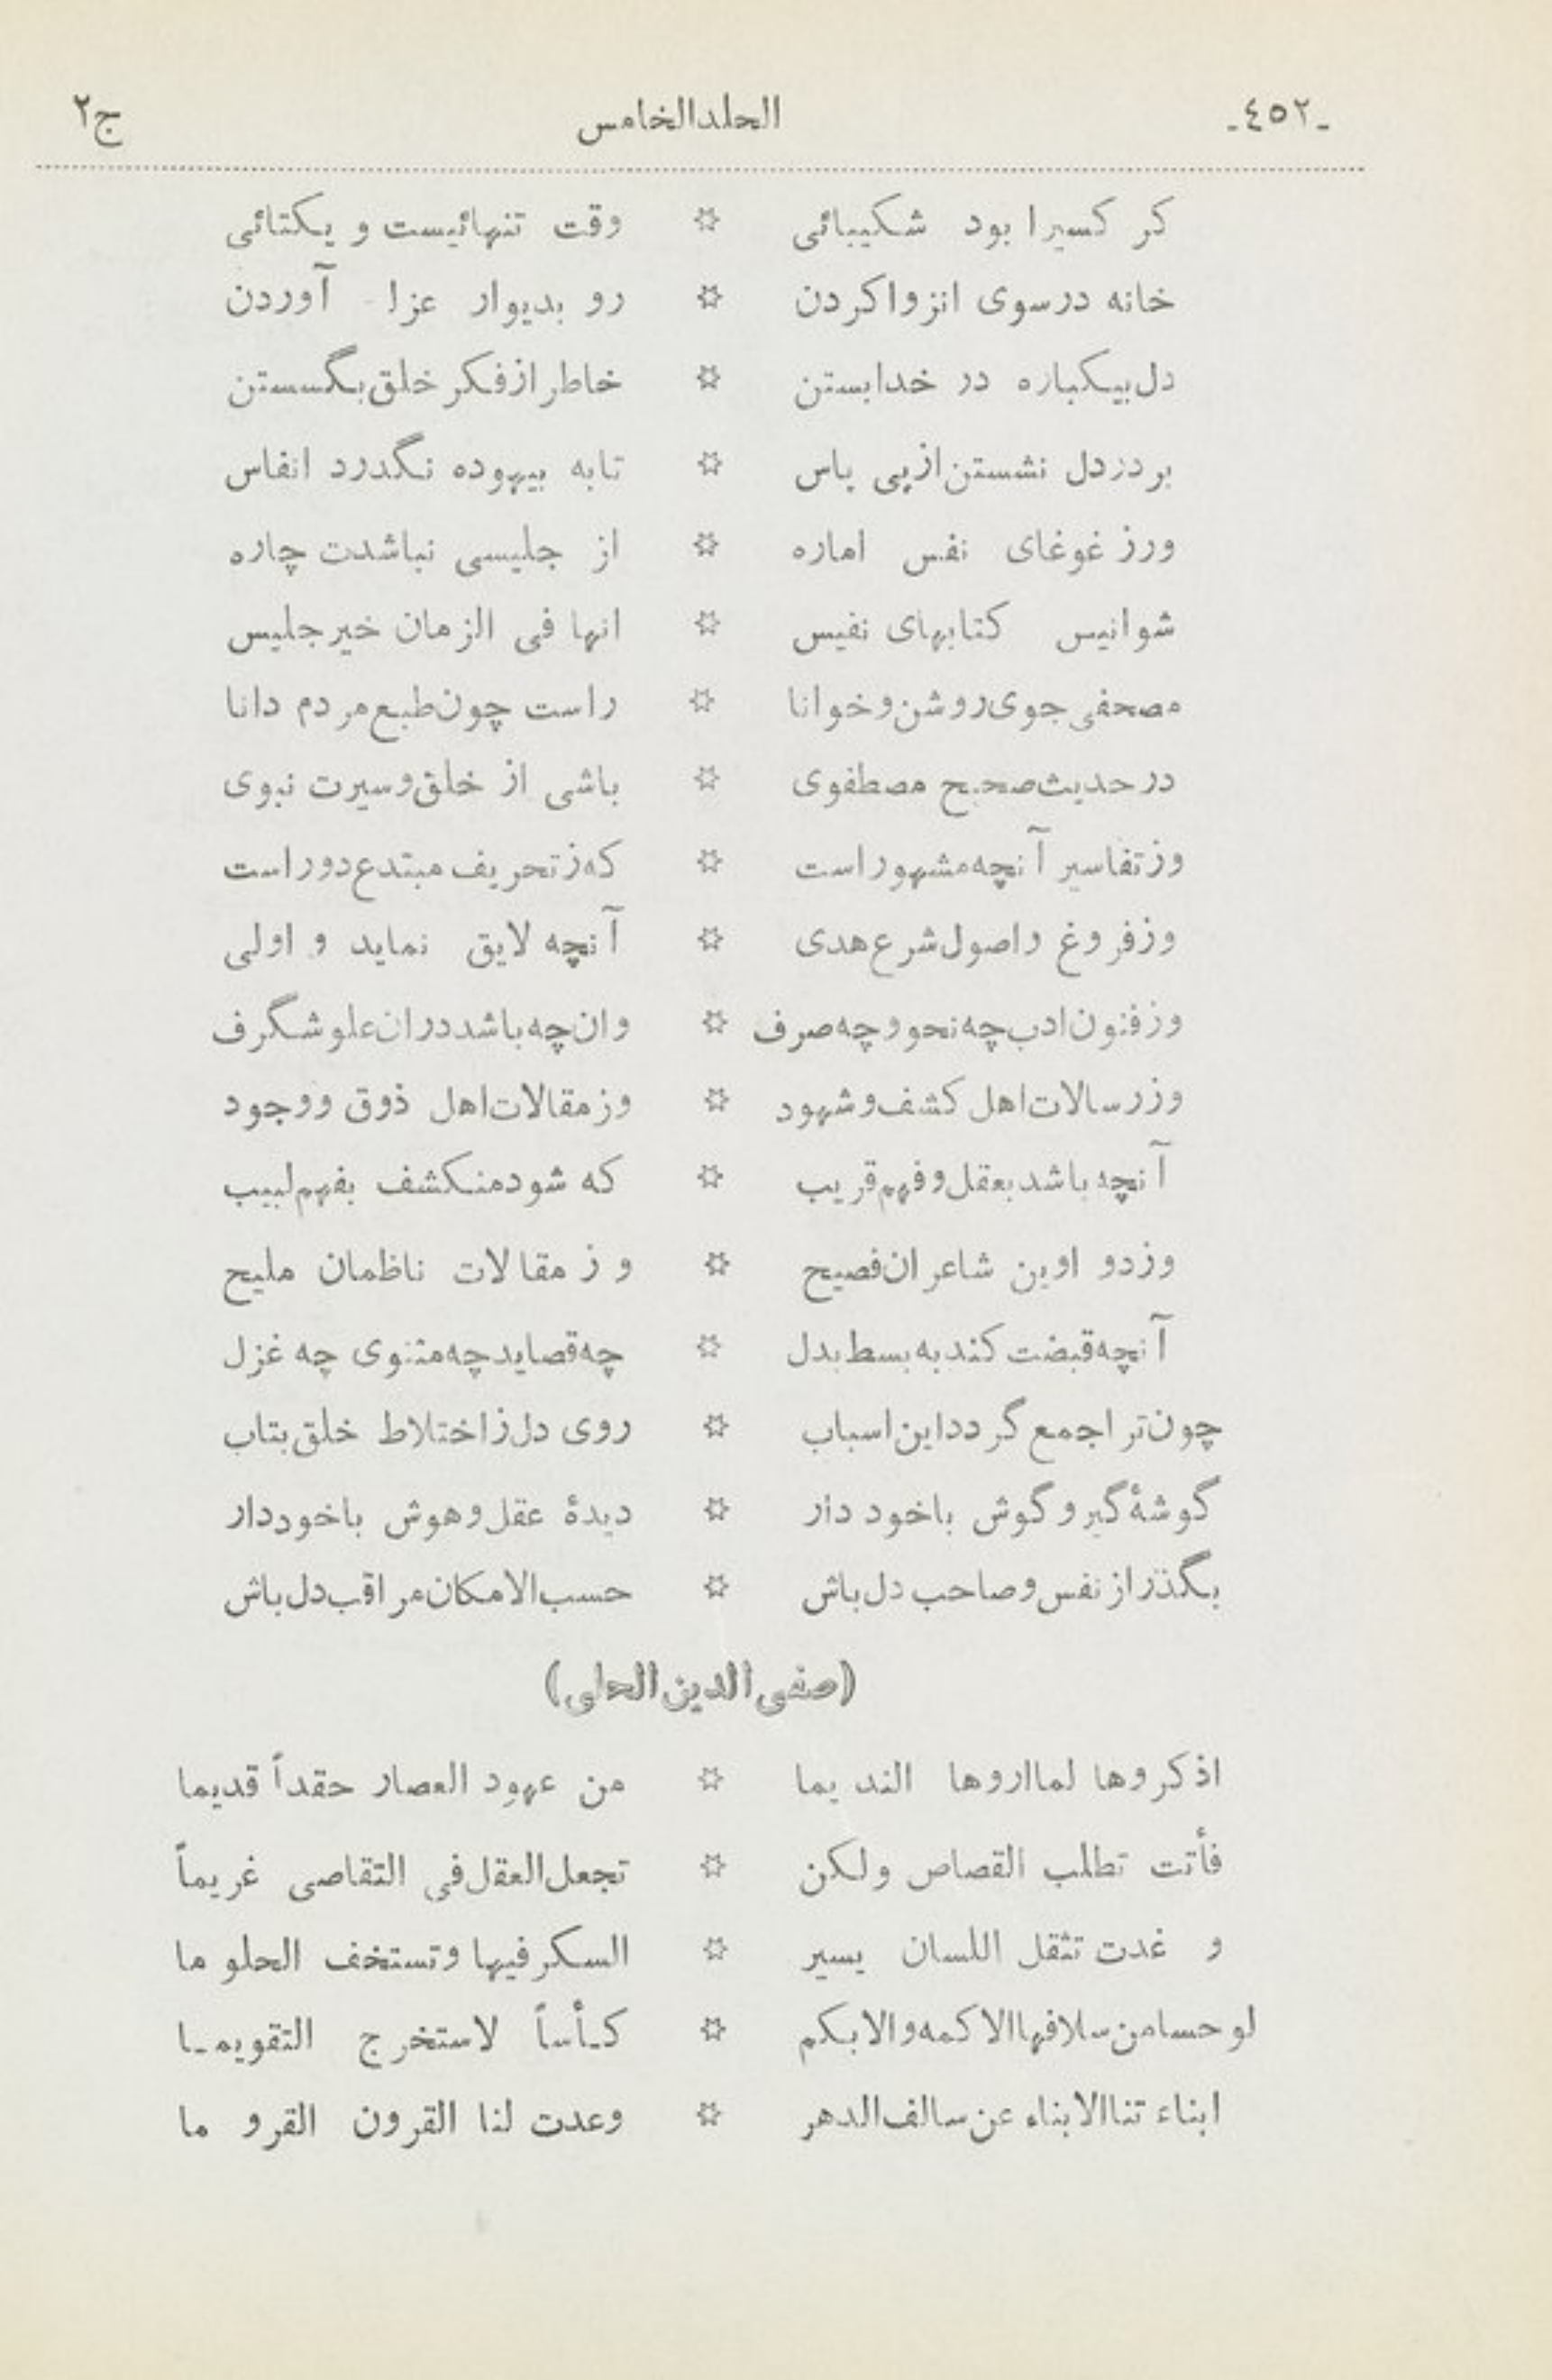 -٤٥٢- الجلد الخامس ج٢
کر کسیرا بود شکیبائی ☼ وقت تنهائیست و یکتائی
خانه در سوی انزوا کردن ☼ رو بدیوار عزا آوردن
دل بیکباره در خدا بستن ☼ خاطر از فکر خلق بگسستن
بر در دل نشستن از پی پاس ☼ تا به بیهوده نگذرد انفاس
ورز غوغای نفس اماره ☼ از جلیسی نباشدت چاره
شو انیس کتابهای نفیس ☼ انها فی الزمان خیر جلیس
مصحفی جوی روشن و خوانا ☼ راست چون طبع مردم دانا
در حدیث صحیح مصطفوی ☼ باشی از خلق و سیرت نبوی
وز تفاسیر آنچه مشهور است ☼ که ز تحریف مبتدع دور است
وز فروغ و اصول شرع هدی ☼ آنچه لایق نماید و اولی
وز فنون ادب چه نحو و چه صرف ☼ وان چه باشد در ان علو شگرف
وز رسالات اهل کشف و شهود ☼ وز مقالات اهل ذوق و وجود
آنچه باشد بعقل و فهم قریب ☼ که شود منکشف بفهم لبیب
وز دو اوین شاعران فصیح ☼ وز مقالات ناظمان ملیح
آنچه قبضت کند به بسط بدل ☼ چه قصاید چه مثنوی چه غزل
چون ترا جمع گردد این اسباب ☼ روی دل ز اختلاط خلق بتاب
گوشۀ گیر و گوش باخود دار ☼ دیدۀ عقل و هوش باخود دار
بگذر از نفس و صاحب دل باش ☼ حسب الامکان مراقب دل باش
(صفی الدین الحلی)
اذکروها لما اروها الندیما ☼ من عهود العصار حقداً قدیما
فأتت تطلب القصاص ولکن ☼ تجعل العقل فی التقاصی غریماً
و غدت تثقل اللسان یسیر ☼ السکر فیها وتستخف الحلو ما
لو حسا من سلافها الاکمه والابکم ☼ کـأساً لاستخرج التقویمـا
ابناء تنا الابناء عن سالف الدهر ☼ وعدت لنا القرون القرو ما